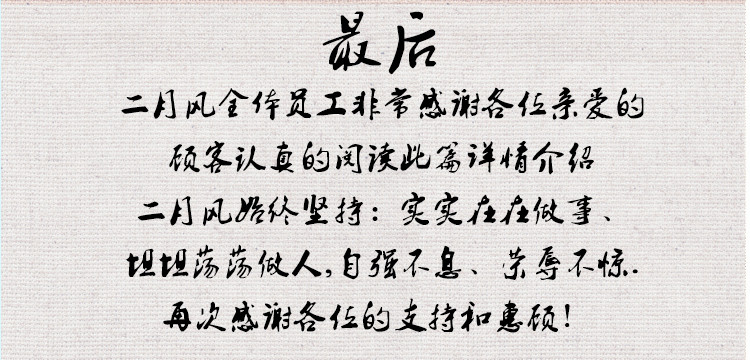 最后
二月风全体员工非常感谢各位亲爱的
顾客认真的阅读此篇详情介绍
二月风始终坚持：实实在在做事、
坦坦荡荡做人,自强不息、荣辱不惊.
再次感谢各位的支持和惠顾！